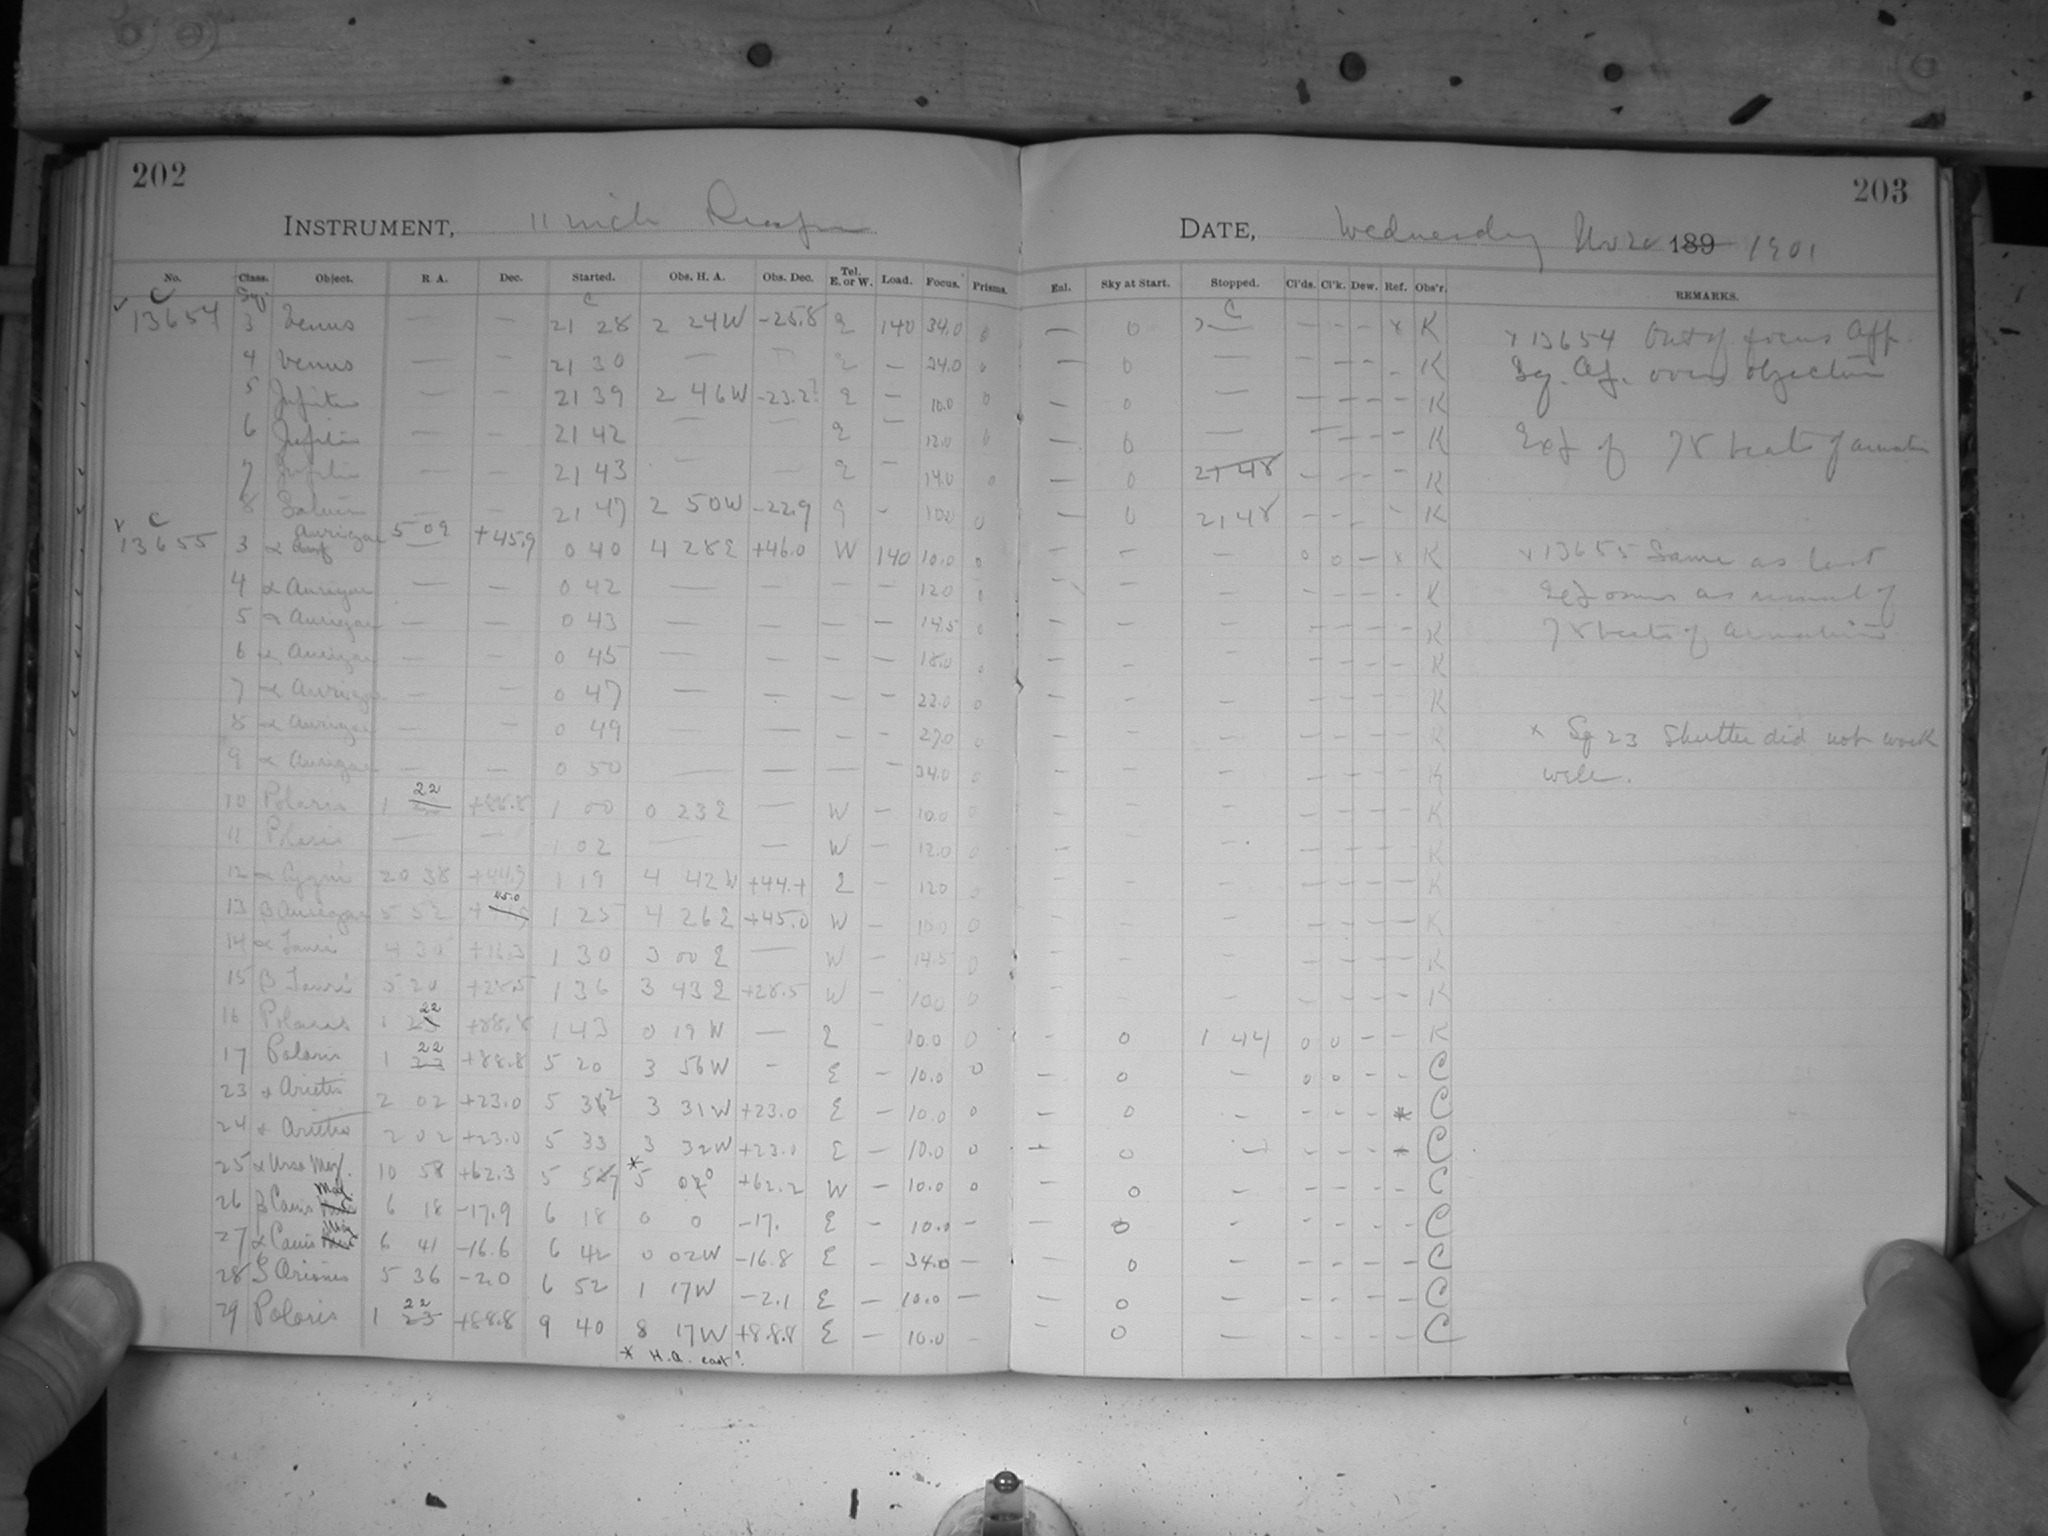 202
203
INSTRUMENT, 11 inch
DATE, Wednesday 189 1901
No. Class. Object. R. A. Dec. Started. Obs. H. A. Obs. Dec. Tel. E. or W. Load. Focus. Prisms. Enl. Sky at Start. Stopped. Cl'ds. Cl'k. Dew. Ref. Obs'r. REMARKS.
C Sq C C
13654 3 Venus — — 21 28 2 24W -25.8 E 140 34.0 0 — 0 — — — — x K x 13654 Out of focus
4 Venus — — 21 30 — E — 24.0 0 — 0 — — — — - K Sq. over objective
5 Jupiter — — 21 39 2 46W -23.2? E — 10.0 0 — 0 — — — — — K
6 Jupiter — — 21 42 — E — 12.0 0 — 0 — — — — — K of 78 beats of
7 Jupiter — — 21 43 — — E — 14.0 0 — 0 21 48 — — — — K
8 Saturn — — 21 47 2 50W -22.9 E — 10.0 0 — 0 21 48 — — — — K
C
13655 3 α Aurigae 5 09 +45.9 0 40 4 28E +46.0 W 140 10.0 0 — — — 0 0 — x K x 13655 Same as last
4 α Aurigae — — 0 42 — — — — 12.0 — — — — — — — K as
5 α Aurigae — — 0 43 — — — — 14.5 0 — — — — — — — K 78 beats of
6 α Aurigae — — 0 45 — — — — 18.0 0 — — — — — — — K
7 α Aurigae — — 0 47 — — — — 22.0 0 — — — — — — — K
8 α Aurigae — — 0 49 — — — — 27.0 0 — — — — — — — K * Sq 23 Shutter did not work
9 α Aurigae — — 0 50 — — — — 34.0 0 — — — — — — — K well.
10 Polaris 1 22 +88.8 1 00 0 23E — W — 10.0 0 — — — — — — — K
11 Polaris — — 1 02 — — W — 12.0 0 — — — — — — — K
12 α Cygni 20 38 +44.9 1 19 4 42W E — 12.0 0 — — — — — — — K
13 β Aurigae 5 52 45.0 1 25 4 26E +45.0 W — 10.0 0 — — — — — — — K
14 α Tauri 4 30 +16.3 1 30 3 00E — W — 14.5 0 — — — — — — — K
15 β Tauri 5 20 +28.5 1 36 3 43E +28.5 W — 10.0 0 — — — — — — — K
16 Polaris 1 22 +88.8 1 43 0 19W — E 10.0 0 — 0 1 44 0 0 — — K
17 Polaris 1 22 +88.8 5 20 3 56W — E — 10.0 0 — 0 — 0 0 — — C
23 α Arietis 2 02 +23.0 5 32 3 31W +23.0 E — 10.0 0 — 0 — — — — * C
24 α Arietis 2 02 +23.0 5 33 3 32W +23.0 E — 10.0 0 — 0 — — — — * C
25 α Ursa Maj. 10 58 +62.3 5 57 * 5 00 +62.2 W — 10.0 0 0 — — — — — C
26 β Canis Maj. 6 18 -17.9 6 18 0 0 -17. E — 10.0 — — 0 — — — — — C
27 α Canis Maj 6 41 -16.6 6 42 0 02W -16.8 E — 34.0 — 0 — — — — — C
28 ζ Orionis 5 36 -2.0 6 52 1 17W -2.1 E — 10.0 — — 0 — — — — — C
29 Polaris 1 22 +88.8 9 40 8 17W +88.8 E — 10.0 — — 0 — — — — — C
* H.A. east?